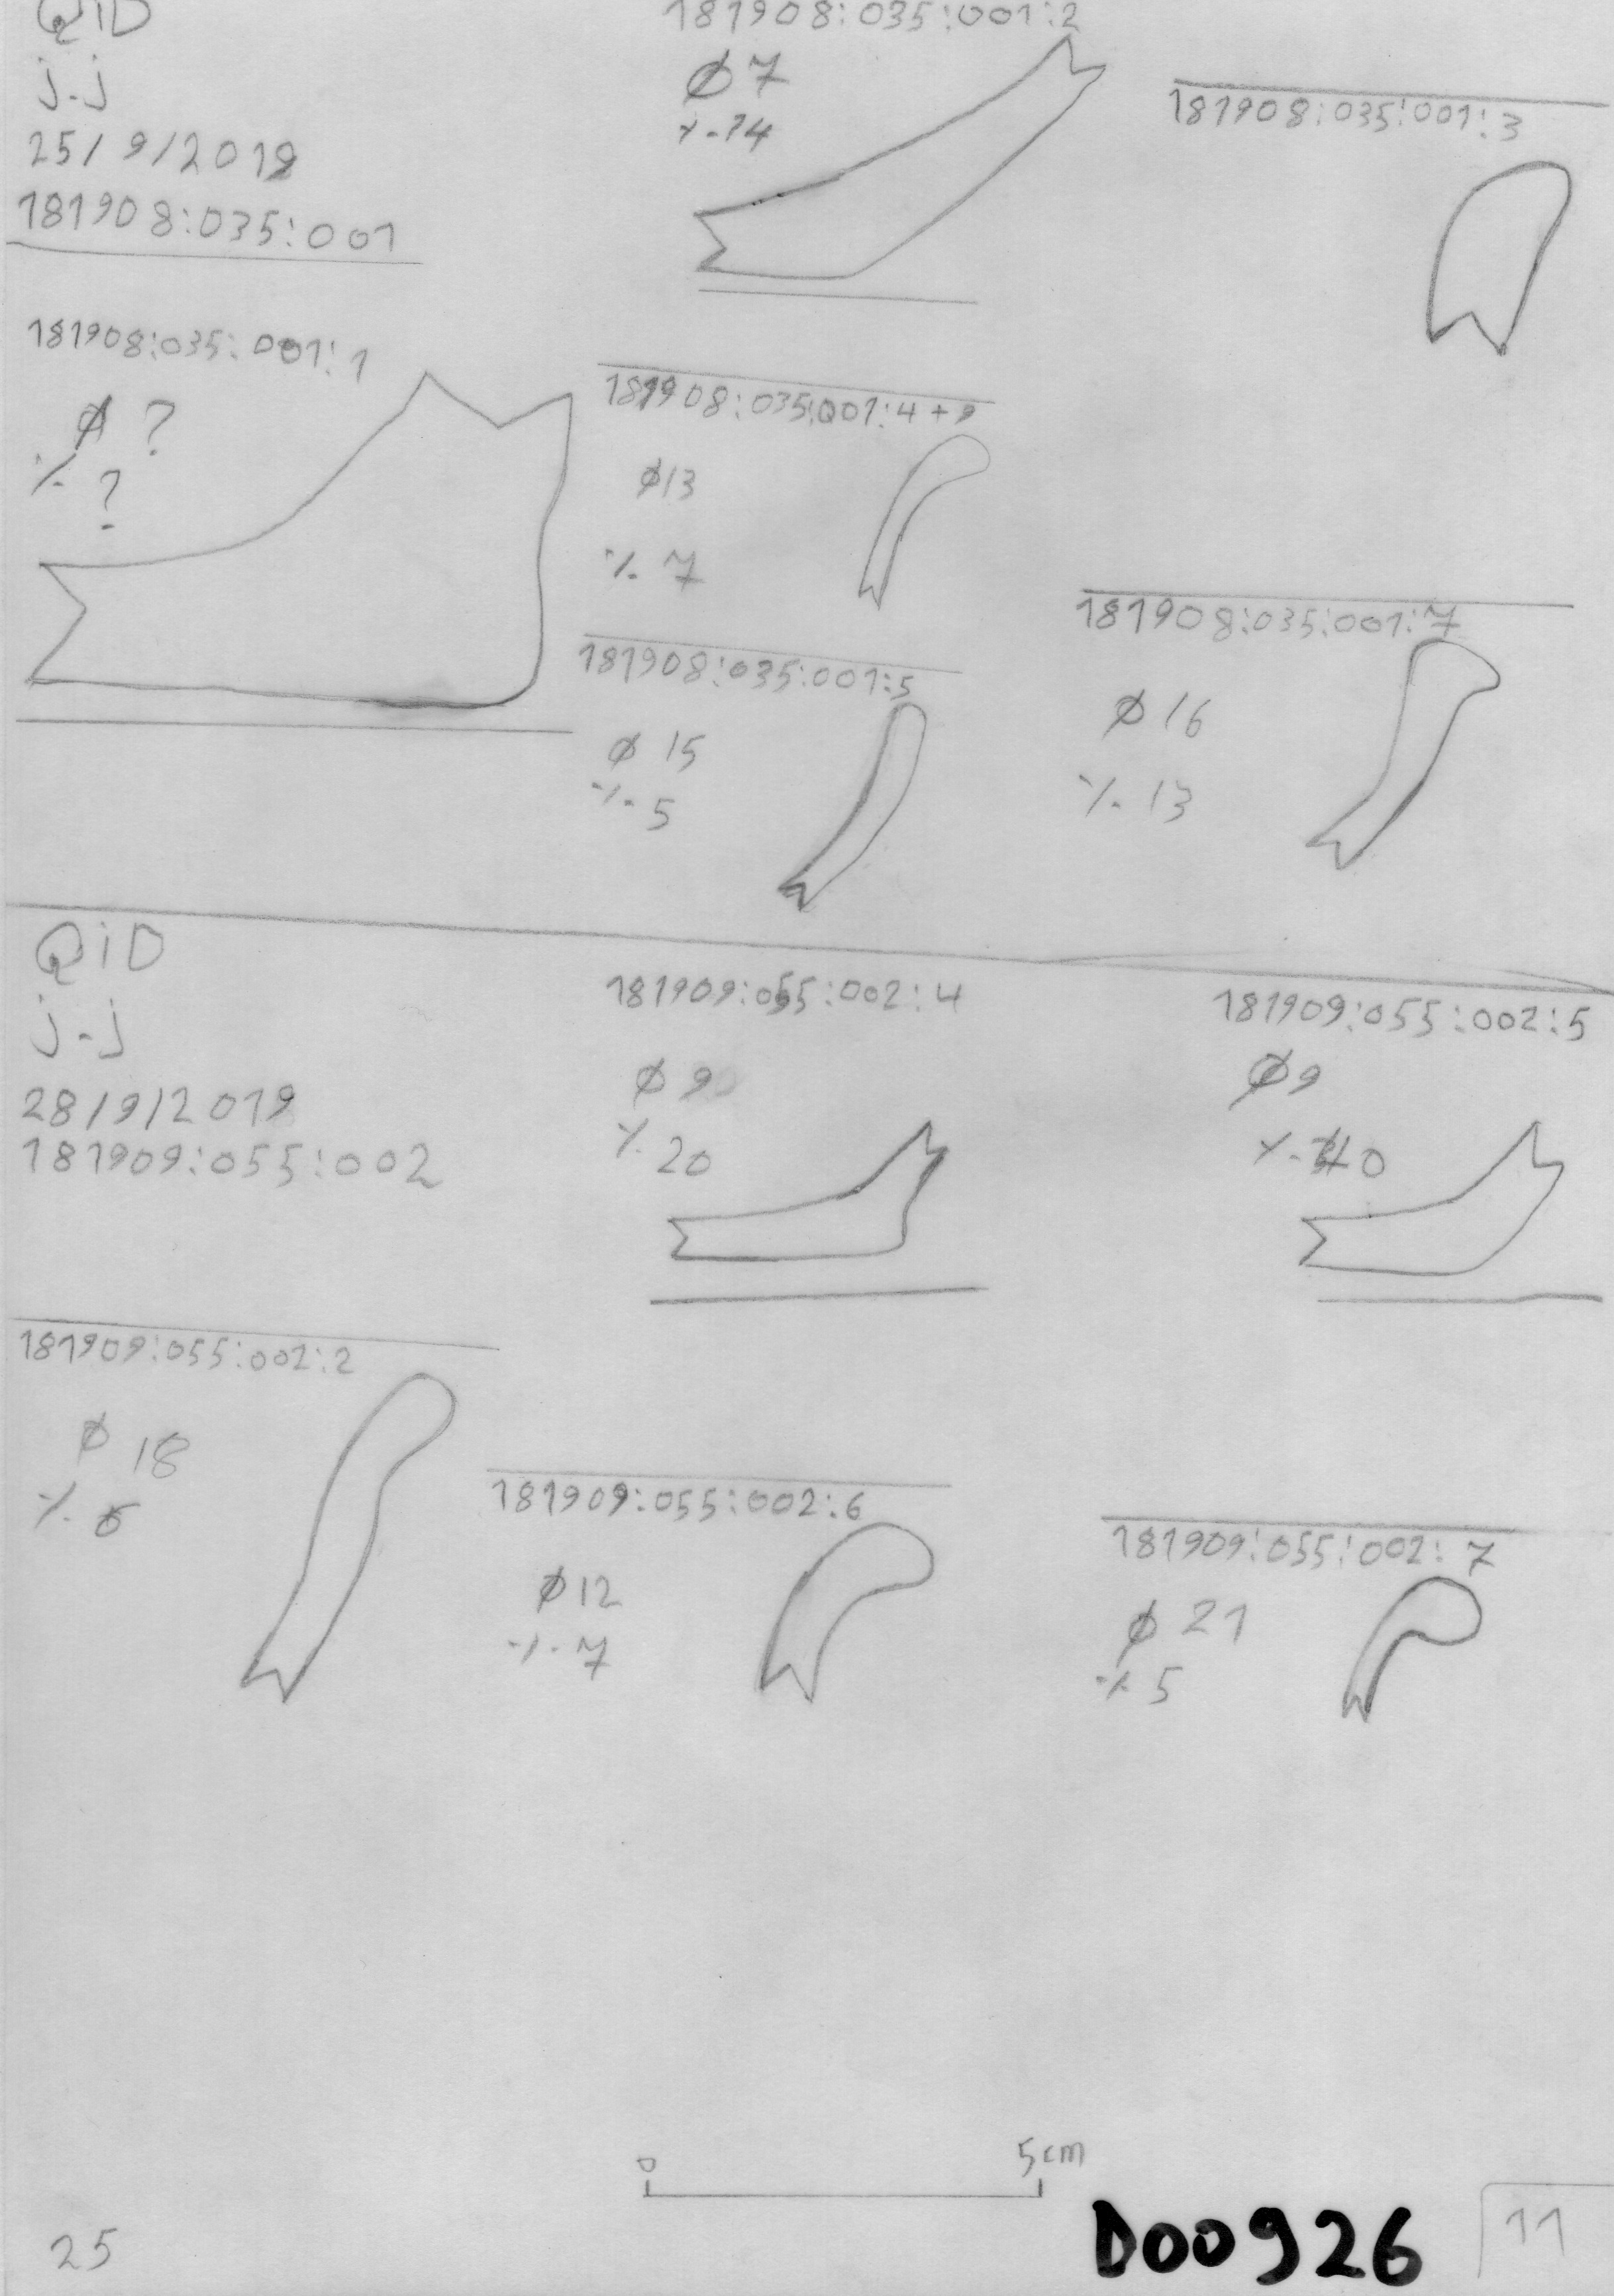 QiD
j-j
25/9/2019
181908:035:001
181908:035:001:2
Ø 7
%. 14
181908:035:001:3
181908:035:001:1
Ø ?
%. ?
181908:035:001:4+9
Ø13
%. 7
181908:035:001:5
Ø 15
%. 5
181908:035:001:7
Ø 16
%. 13
QiD
j-j
28/9/2019
181909:055:002
181909:055:002:4
Ø 9
%. 20
181909:055:002:5
Ø9
181909:055:002:2
Ø 18
181909:055:002:6
Ø12
%. 7
181909:055:002:7
Ø 21
%. 5
0
5cm
25
D00926
11